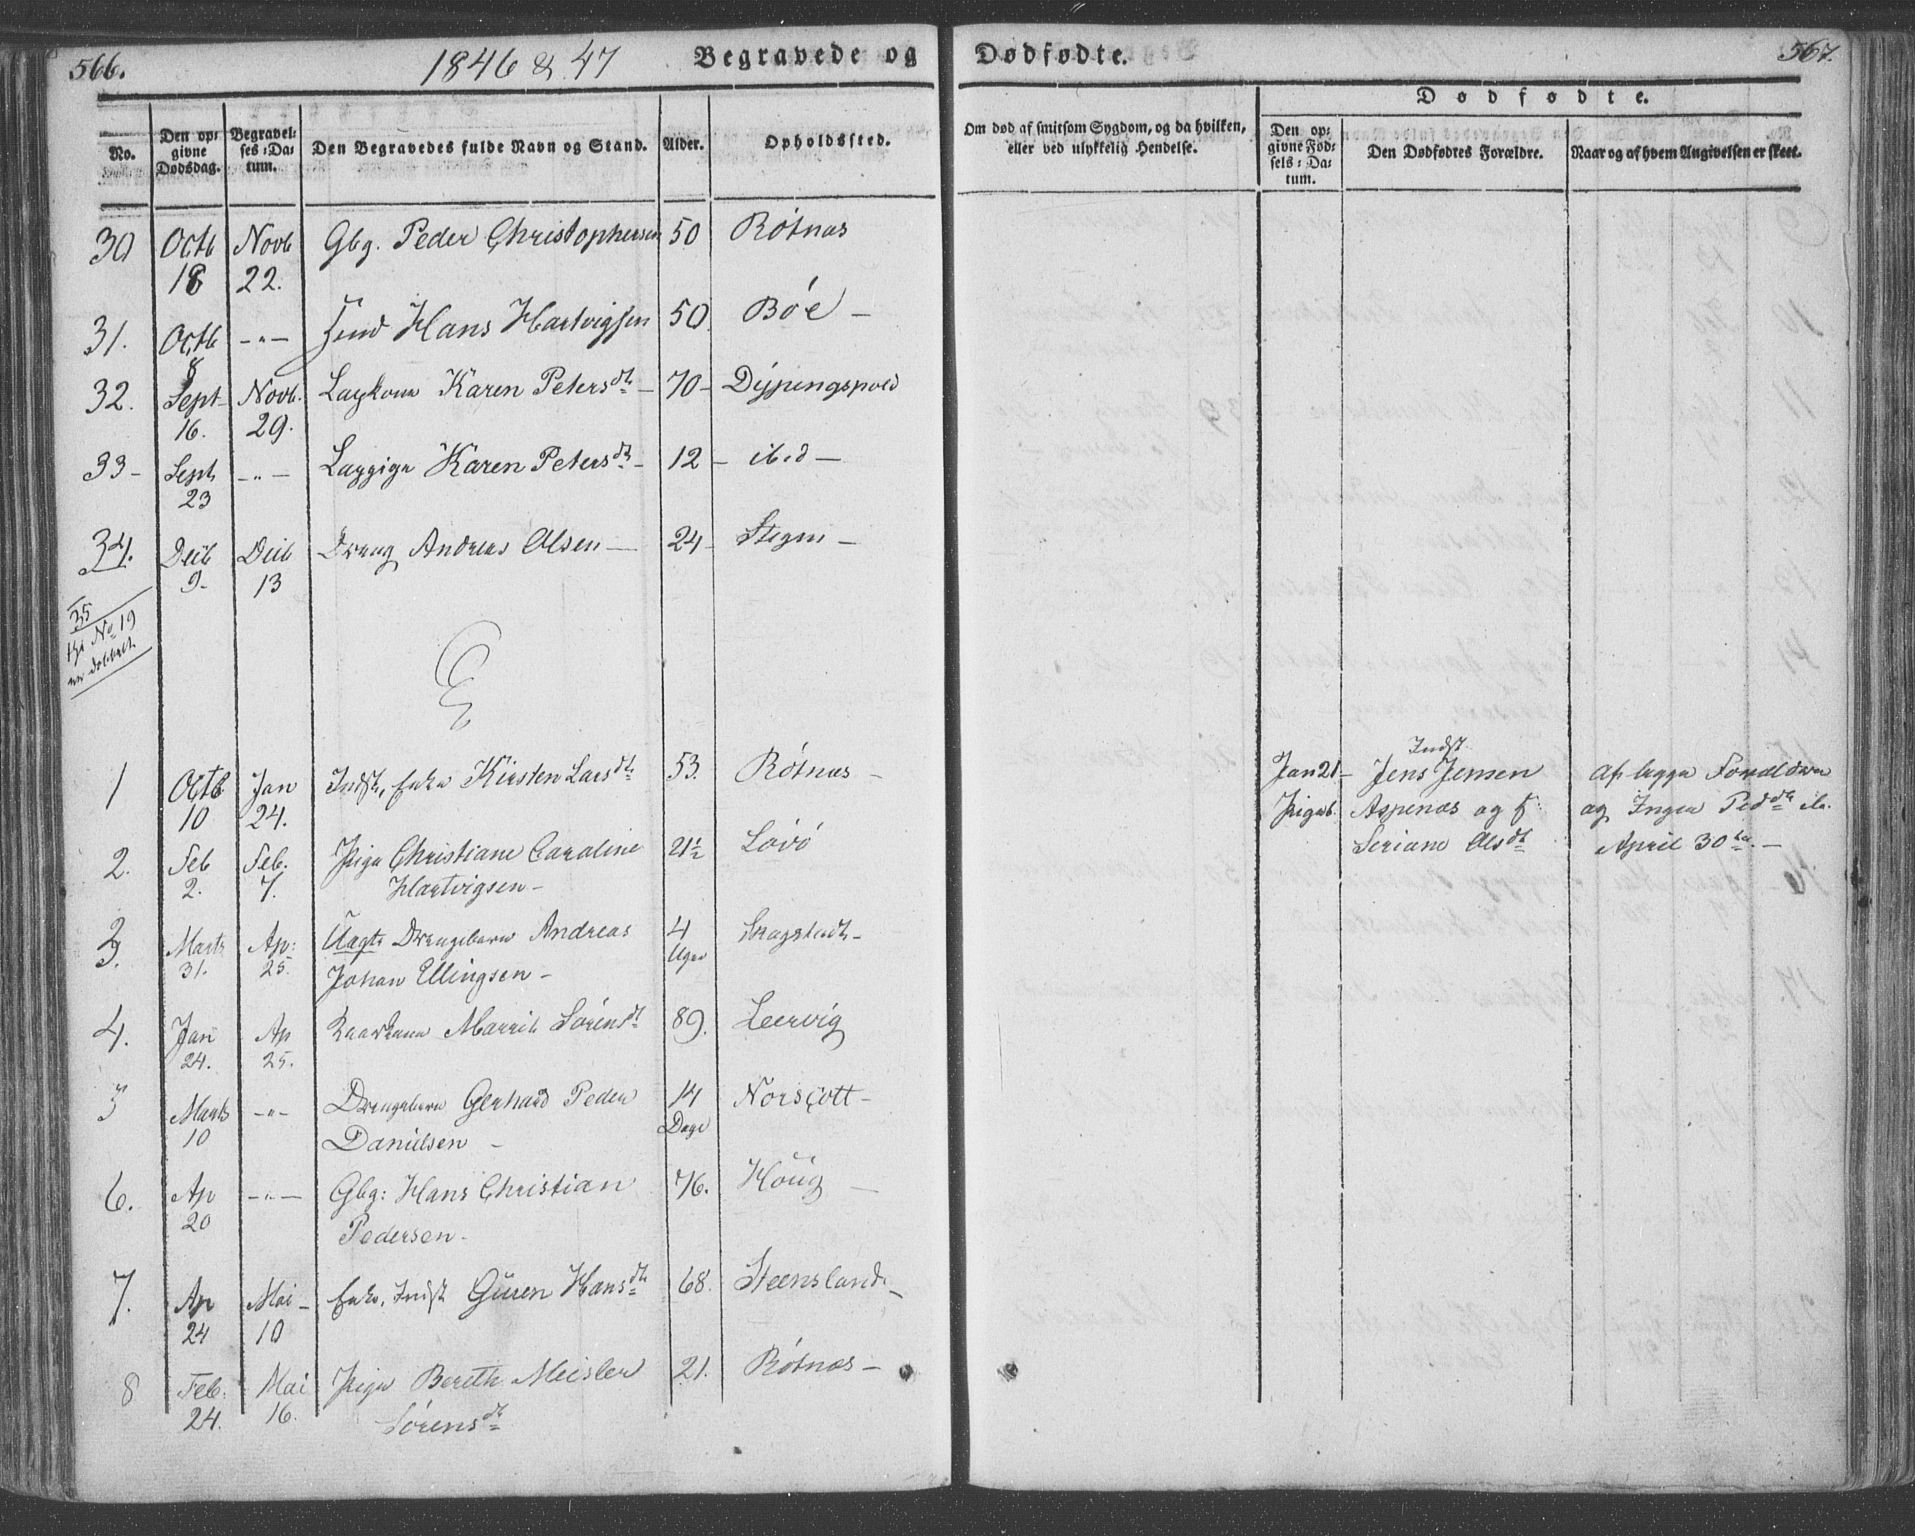 566.
1846 & 47
Begravede og
Dødfødte.
567.
No.
Den op-
givne
Dødsdag.
Begravel-
ses-Da-
tum.
Den Begravedes fulde Navn og Stand.
Alder.
Opholdssted.
Om død af smitsom Sygdom, og da hvilken,
eller ved ulykkelig Hendelse.
Dødfødte.
Den op-
givne Fød-
sels-Da-
tum.
Den Dødfødtes Forældre.
Naar og af hvem Angivelsen er skeet.
30 Octb Novb Gbg. Peder Christophersen 50 Rötnæs
18 22.
31. Octb -"- Hans Hartvigsen 50 Böe -
8
32. Sept Novb. Karen Petersdtr - 70 -
16. 29.
33- Sept -"- Karen Petersdtr - 12 - ibid -
23
34. Decb Decb Dreng Andreas Olsen - 24 - Stegen -
9- 13
35
thi No 19
er dobbelt
1 Octb Jan Indst. Enke Kirsten Larsdtr 53. Rötnæs -
10 24.
2. Feb Feb. Pige Christiane Caroline 21½ Lövö
2. 7. Hartvigsen -
3. Marts Ap: Uægte Drengebarn Andreas 4 Skagstadt -
31. 25. Johan Ellingsen - Uger
4. Jan Ap Marrit Sörensdtr 89. Leervig
24. 25.
5 Marts -"- Drengebarn Gerhard Peder 14 Norsfott -
10 Danielsen - Dage
6. Ap -"- Gbg: Hans Christian 76. Houg -
20 Pedersen -
7. Ap Mai - Enke, Indst Guren Hansdtr 68. Steensland -
24 10
8 Feb. Mai Pige Bereth Meisler 21. Rötnæs -
24. 16. Sörensdtr
Indst.
Jan 21 - Jens Jensen Af begge Forældrene
Pigeb. Aspenæs og og Inger Pedsdtr
Seriane Olsdtr April 30